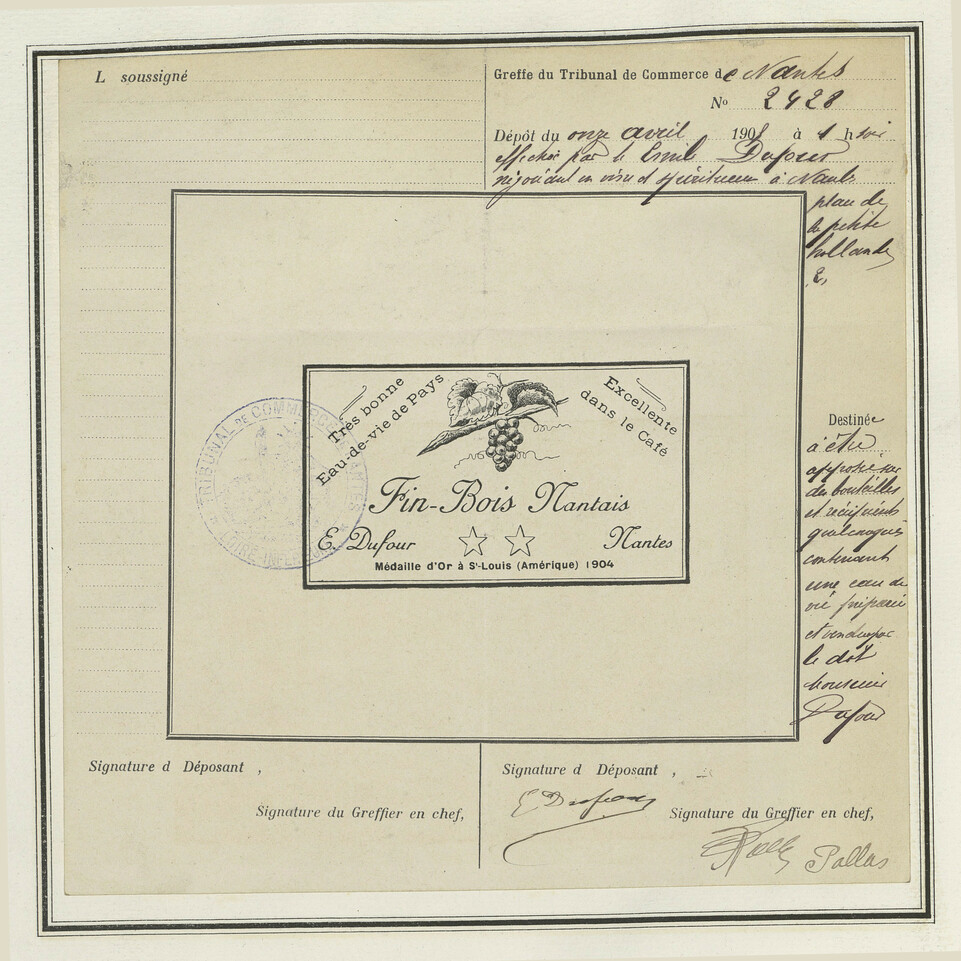 L soussigné
Greffe du Tribunal de Commerce de Nantes
No 2428
Dépôt du onze avril 1908 à 1 h soir
effectué par le Emile Dufour
négociant en vins et spiritueux à Nantes
place de
la petite
hollande
2,
Très bonne
Eau-de-vie de Pays
Excellente
dans le Café
Fin-Bois Nantais
E. Dufour Nantes
Médaille d'Or à St-Louis (Amérique) 1904
TRIBUNAL DE COMMERCE NANTES
LOIRE-INFÉRIEURE
Destinée
à être
apposée sur
des bouteilles
et récipients
quelconques
contenant
une eau de
vie préparée
et vendue par
le dit
Monsieur
Dufour
Signature d Déposant ,
Signature du Greffier en chef,
Signature d Déposant ,
E. Dufour
Signature du Greffier en chef,
Pallas